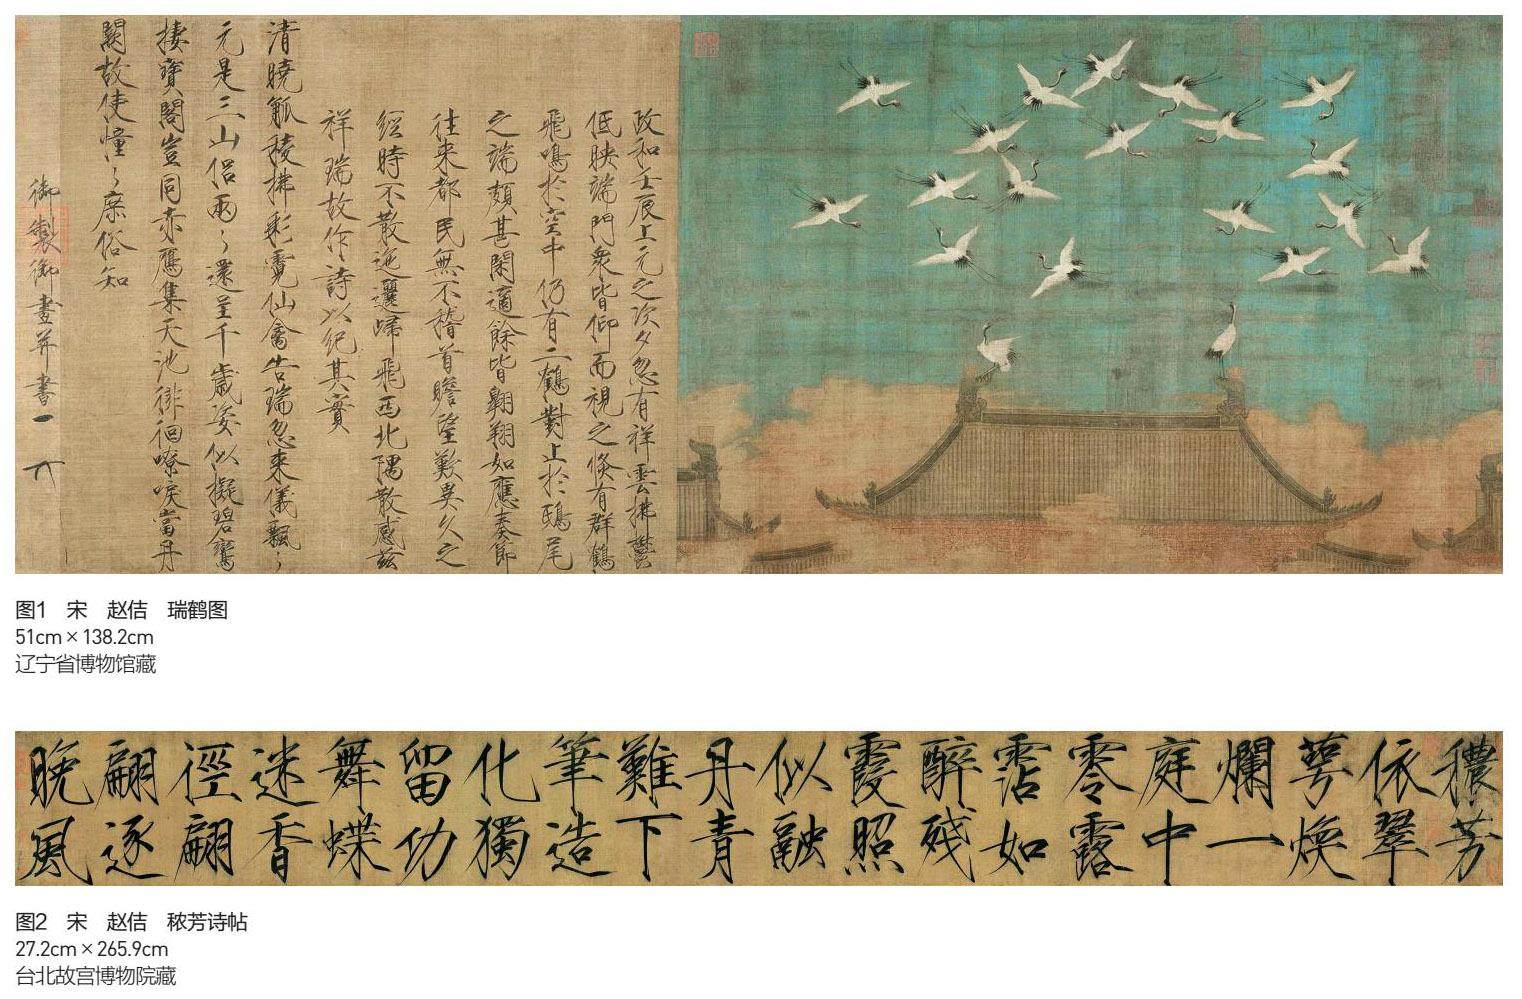 政和壬辰上元之次夕忽有祥雲拂鬱
低映端門衆皆仰而視之倏有群鶴
飛鳴於空中仍有二鶴對止於鴟尾
之端頗甚閑適餘皆翱翔如應奏節
往来都民無不稽首瞻望歎異久之
經時不散迤邐歸飛西北隅散感兹
祥瑞故作詩以紀其實
清曉觚稜拂彩霓仙禽告瑞忽来儀飄〻
元是三山侣兩〻還呈千歲姿似擬碧鸞
棲寶閣豈同赤鴈集天池徘徊嘹唳當丹
闕故使憧〻庶俗知
御製御畫并書
图1 宋 赵佶 瑞鹤图
51cm×138.2cm
辽宁省博物馆藏
穠芳
依翠
萼煥
爛一
庭中
零露
霑如
醉殘
霞照
似融
丹青
難下
筆造
化獨
留功
舞蝶
迷香
徑翩
翩逐
晚風
图2 宋 赵佶 秾芳诗帖
27.2cm×265.9cm
台北故宫博物院藏